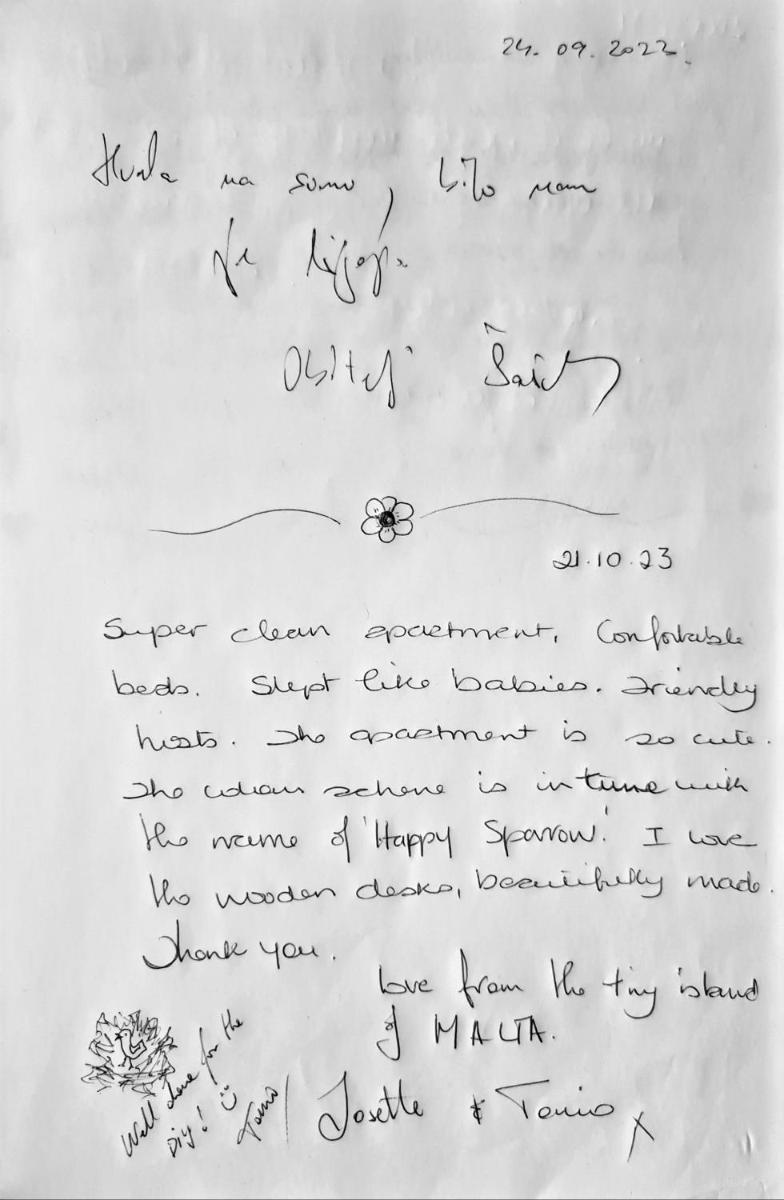 24. 09. 2022.
Hvala na svemu, bilo nam
je lijepo
Obitelj
21.10.23
Super clean apartment, Comfortable
beds. Slept like babies. Friendly
hosts. The apartment is so cute.
The colour scheme is in tune with
the name of 'Happy Sparrow.' I love
the wooden desks, beautifully made.
Thank you.
Love from the tiny island
of MALTA.
Josette & Tonio x
Well done for the
DIY! Tonio